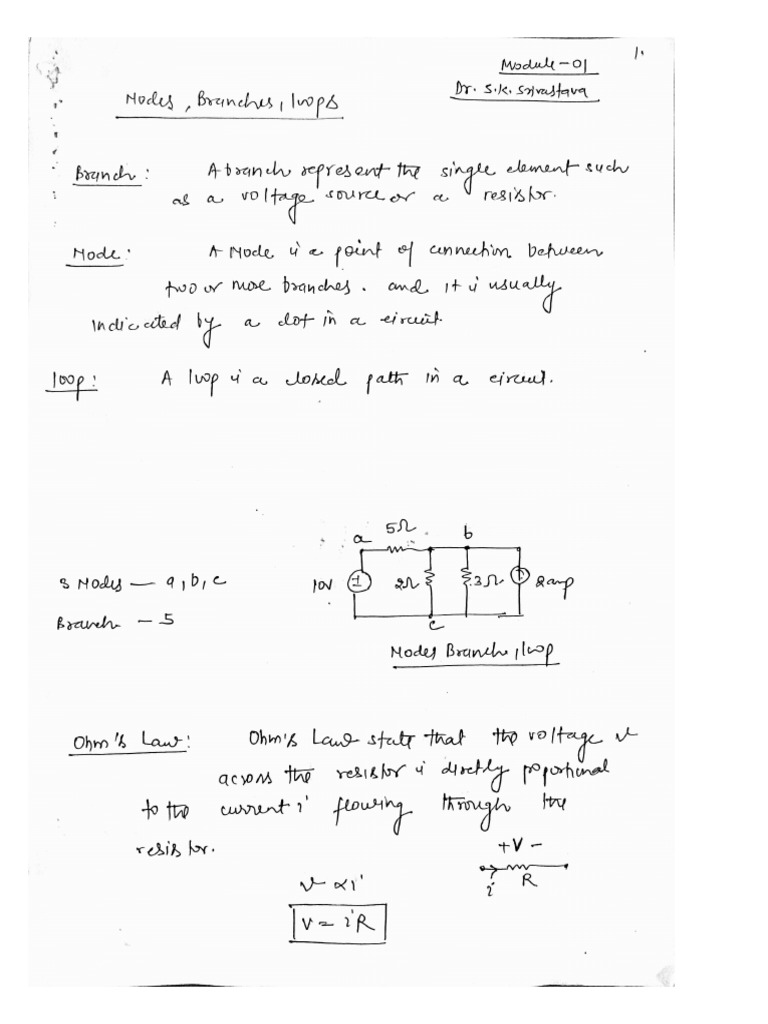 1.
Module-01
Dr. S.K. Srivastava
Nodes, Branches, loops
Branch: A branch represent the single element such
as a voltage source or a resistor.
Node: A Node is a point of connection between
two or more branches. and it is usually
indicated by a dot in a circuit.
loop: A loop is a closed path in a circuit.
5Ω
a b
3 Nodes — a, b, c
10V ± 2Ω 3Ω 2amp
Branch - 5
c
Nodes Branch, loop
Ohm's Law: Ohm's Law state that the voltage v
across the resistor is directly poportional
to the current i flowing through the
resistor.
+V-
i R
v ∝ i
V = iR